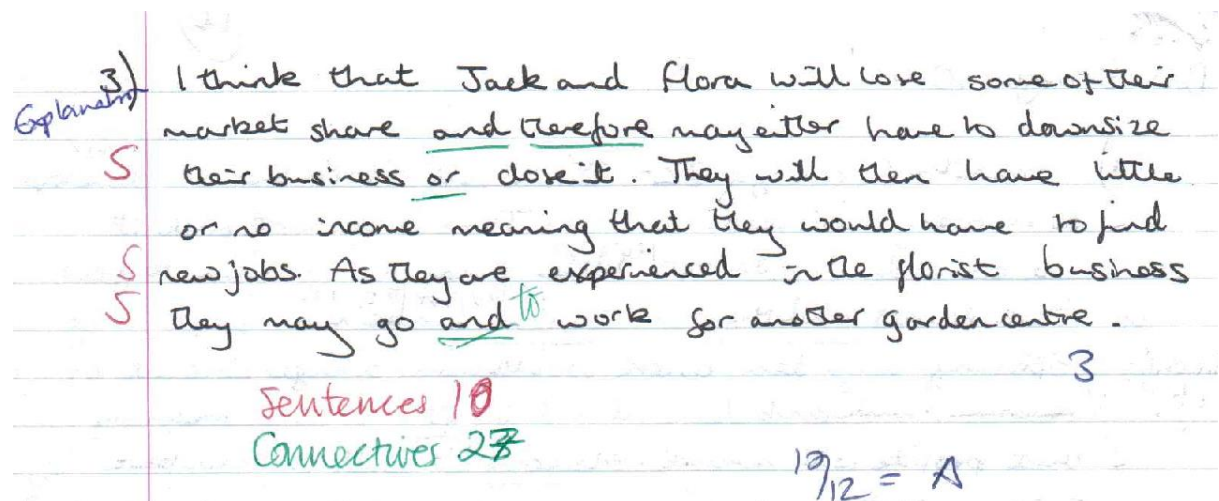 3) I think that Jack and Flora will lose some of their
Explanation market share and therefore may either have to downsize
S their business or close it. They will then have little
or no income meaning that they would have to find
S new jobs. As they are experienced in the florist business
S they may go and to work for another garden centre.
3
Sentences 10
Connectives 27
/12 = A